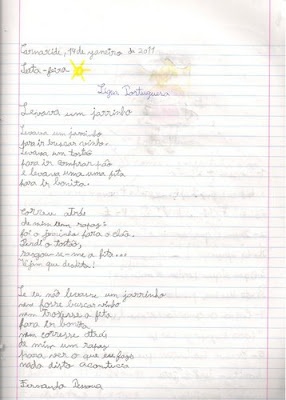 Carnaxide, 14 de janeiro de 2011
Sexta-feira
Lígua Portuguesa
Levava um jarrinho
Levava um jarrinho
para ir buscar vinho.
Levava um tostão
para ir comprar pão
e levava uma uma fita
para ir bonita.
Correu atrás
de mim um rapaz:
foi o jarrinho para o chão.
Perdi o tostão,
rasgou-se-me a fita...
Vejam que desdita!
Se eu não levasse um jarrinho
nem fosse buscar vinho
nem trouxesse a fita
para ir bonita
nem corresse atrás
de mim um rapaz
para ver o que eu faço
nada disto acontecia
Fernando Pessoa